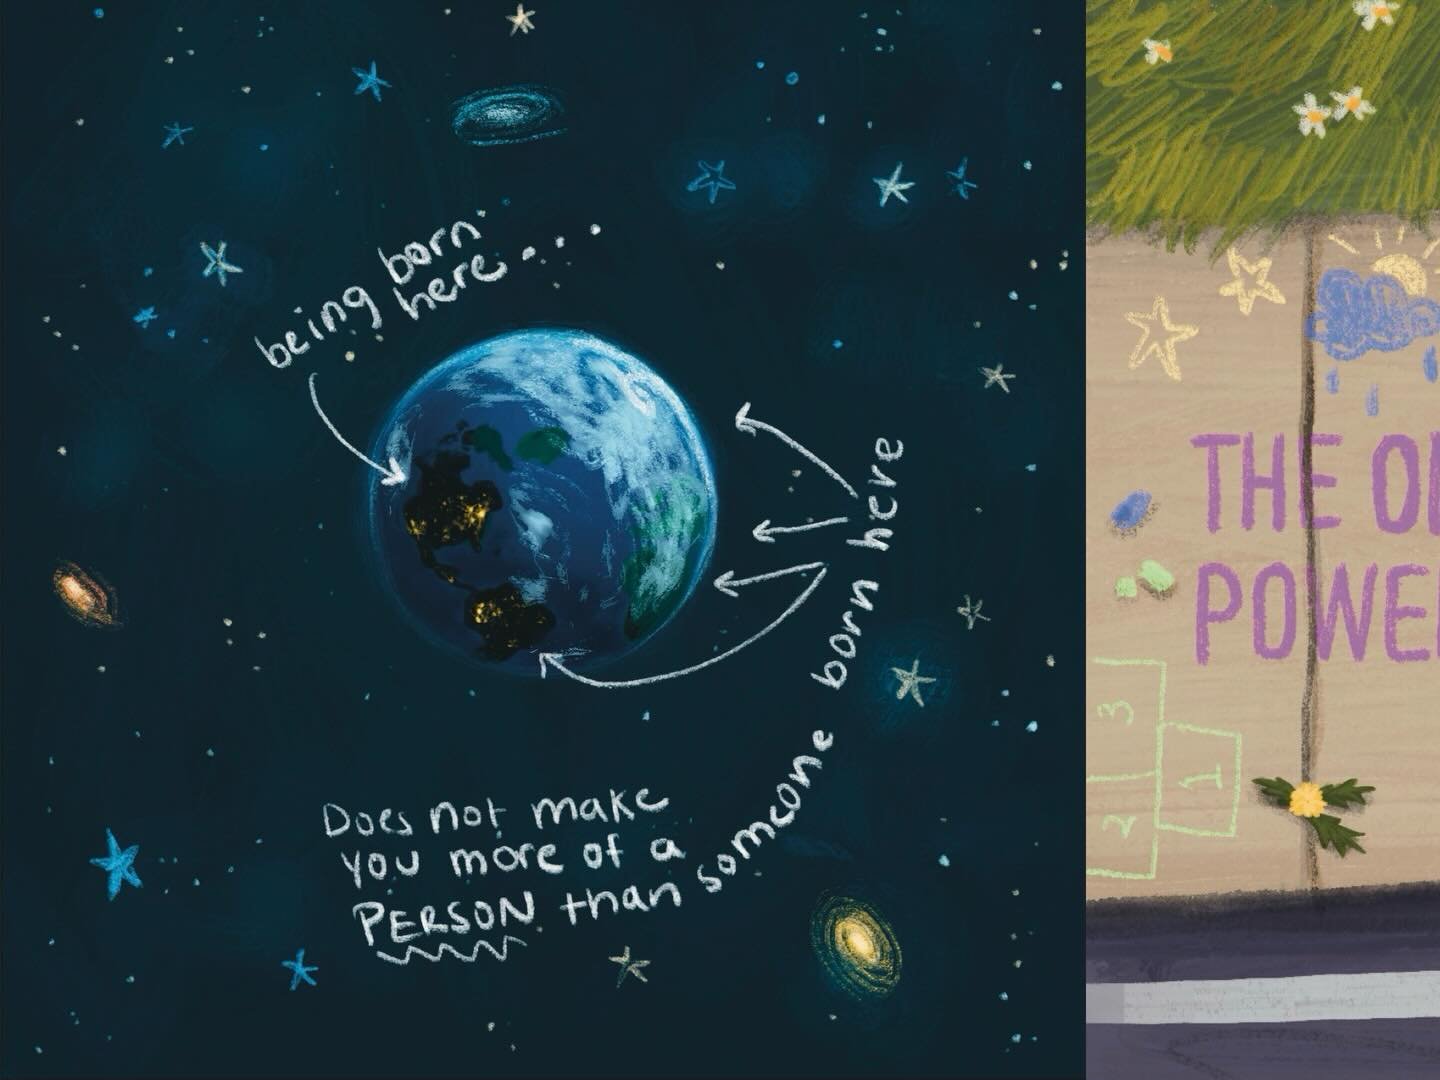 being born
here....
Does not make
you more of a
PERSON than someone born here
THE
POWE
3
2
1